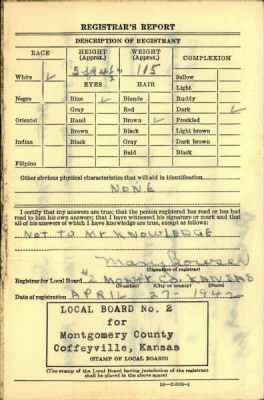 REGISTRAR'S REPORT
DESCRIPTION OF REGISTRANT
RACE HEIGHT (Approx.) WEIGHT (Approx.) COMPLEXION
White ✓ 115 Sallow
EYES HAIR Light
Negro Blue ✓ Blonde Ruddy
Gray Red Dark ✓
Oriental Hazel Brown ✓ Freckled
Brown Black Light brown
Indian Black Gray Dark brown
Bald Black
Filipino
Other obvious physical characteristics that will aid in identification
NONE
I certify that my answers are true; that the person registered has read or has had
read to him his own answers; that I have witnessed his signature or mark and that
all of his answers of which I have knowledge are true, except as follows:
NOT TO MY KNOWLEDGE
(Signature of registrar)
Registrar for Local Board #2 MONTG. CO. KANSAS
(Number) (City or county) (State)
Date of registration APRIL 27 - 1942
LOCAL BOARD No. 2
for
Montgomery County
Coffeyville, Kansas
(STAMP OF LOCAL BOARD)
(The stamp of the Local Board having jurisdiction of the registrant
shall be placed in the above space)